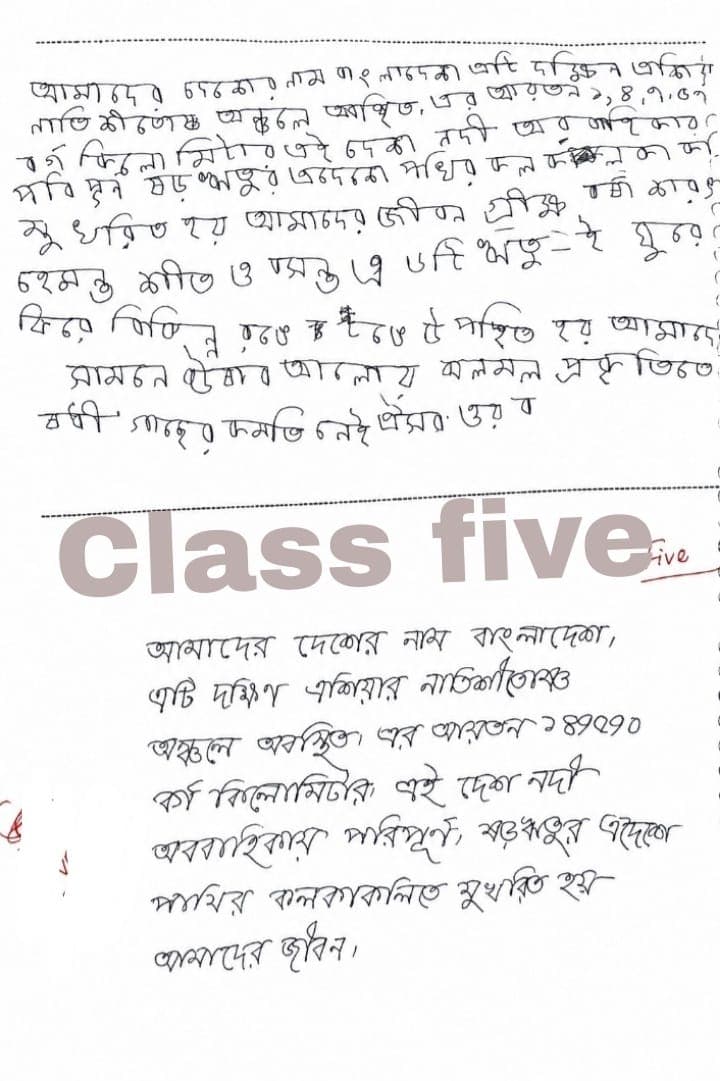 আমাদের দেশের নাম বাংলাদেশ এটি দক্ষিন এশিয়া
নাতিশীতোষ্ণ অঞ্চলে অবস্থিত, এর আয়তন ১,৪,৭,৫৭
বর্গ কিলো মিটার এই দেশ নদী অববাহিকায়
পরিপূর্ন ষড়ঋতুর এদেশে পাখির কল
মুখরিত হয় আমাদের জীবন গ্রীষ্ম বর্ষা শরৎ
হেমন্ত শীত ও বসন্ত এ ৬টি ঋতু-ই ঘুরে
ফিরে বিভিন্ন রঙে উপস্থিত হয় আমাদে
সামনে আলোয় ঝলমল প্রকৃতিতে
বর্ষা গাছের কমতি নেই
Class five
Five
আমাদের দেশের নাম বাংলাদেশ,
এটি দক্ষিণ এশিয়ার নাতিশীতোষ্ণ
অঞ্চলে অবস্থিত, এর আয়তন ১৪৭৫৭০
বর্গ কিলোমিটার, এই দেশ নদী
অববাহিকায় পরিপূর্ণ, ষড়ঋতুর এদেশে
পাখির কলকাকলিতে মুখরিত হয়
আমাদের জীবন,